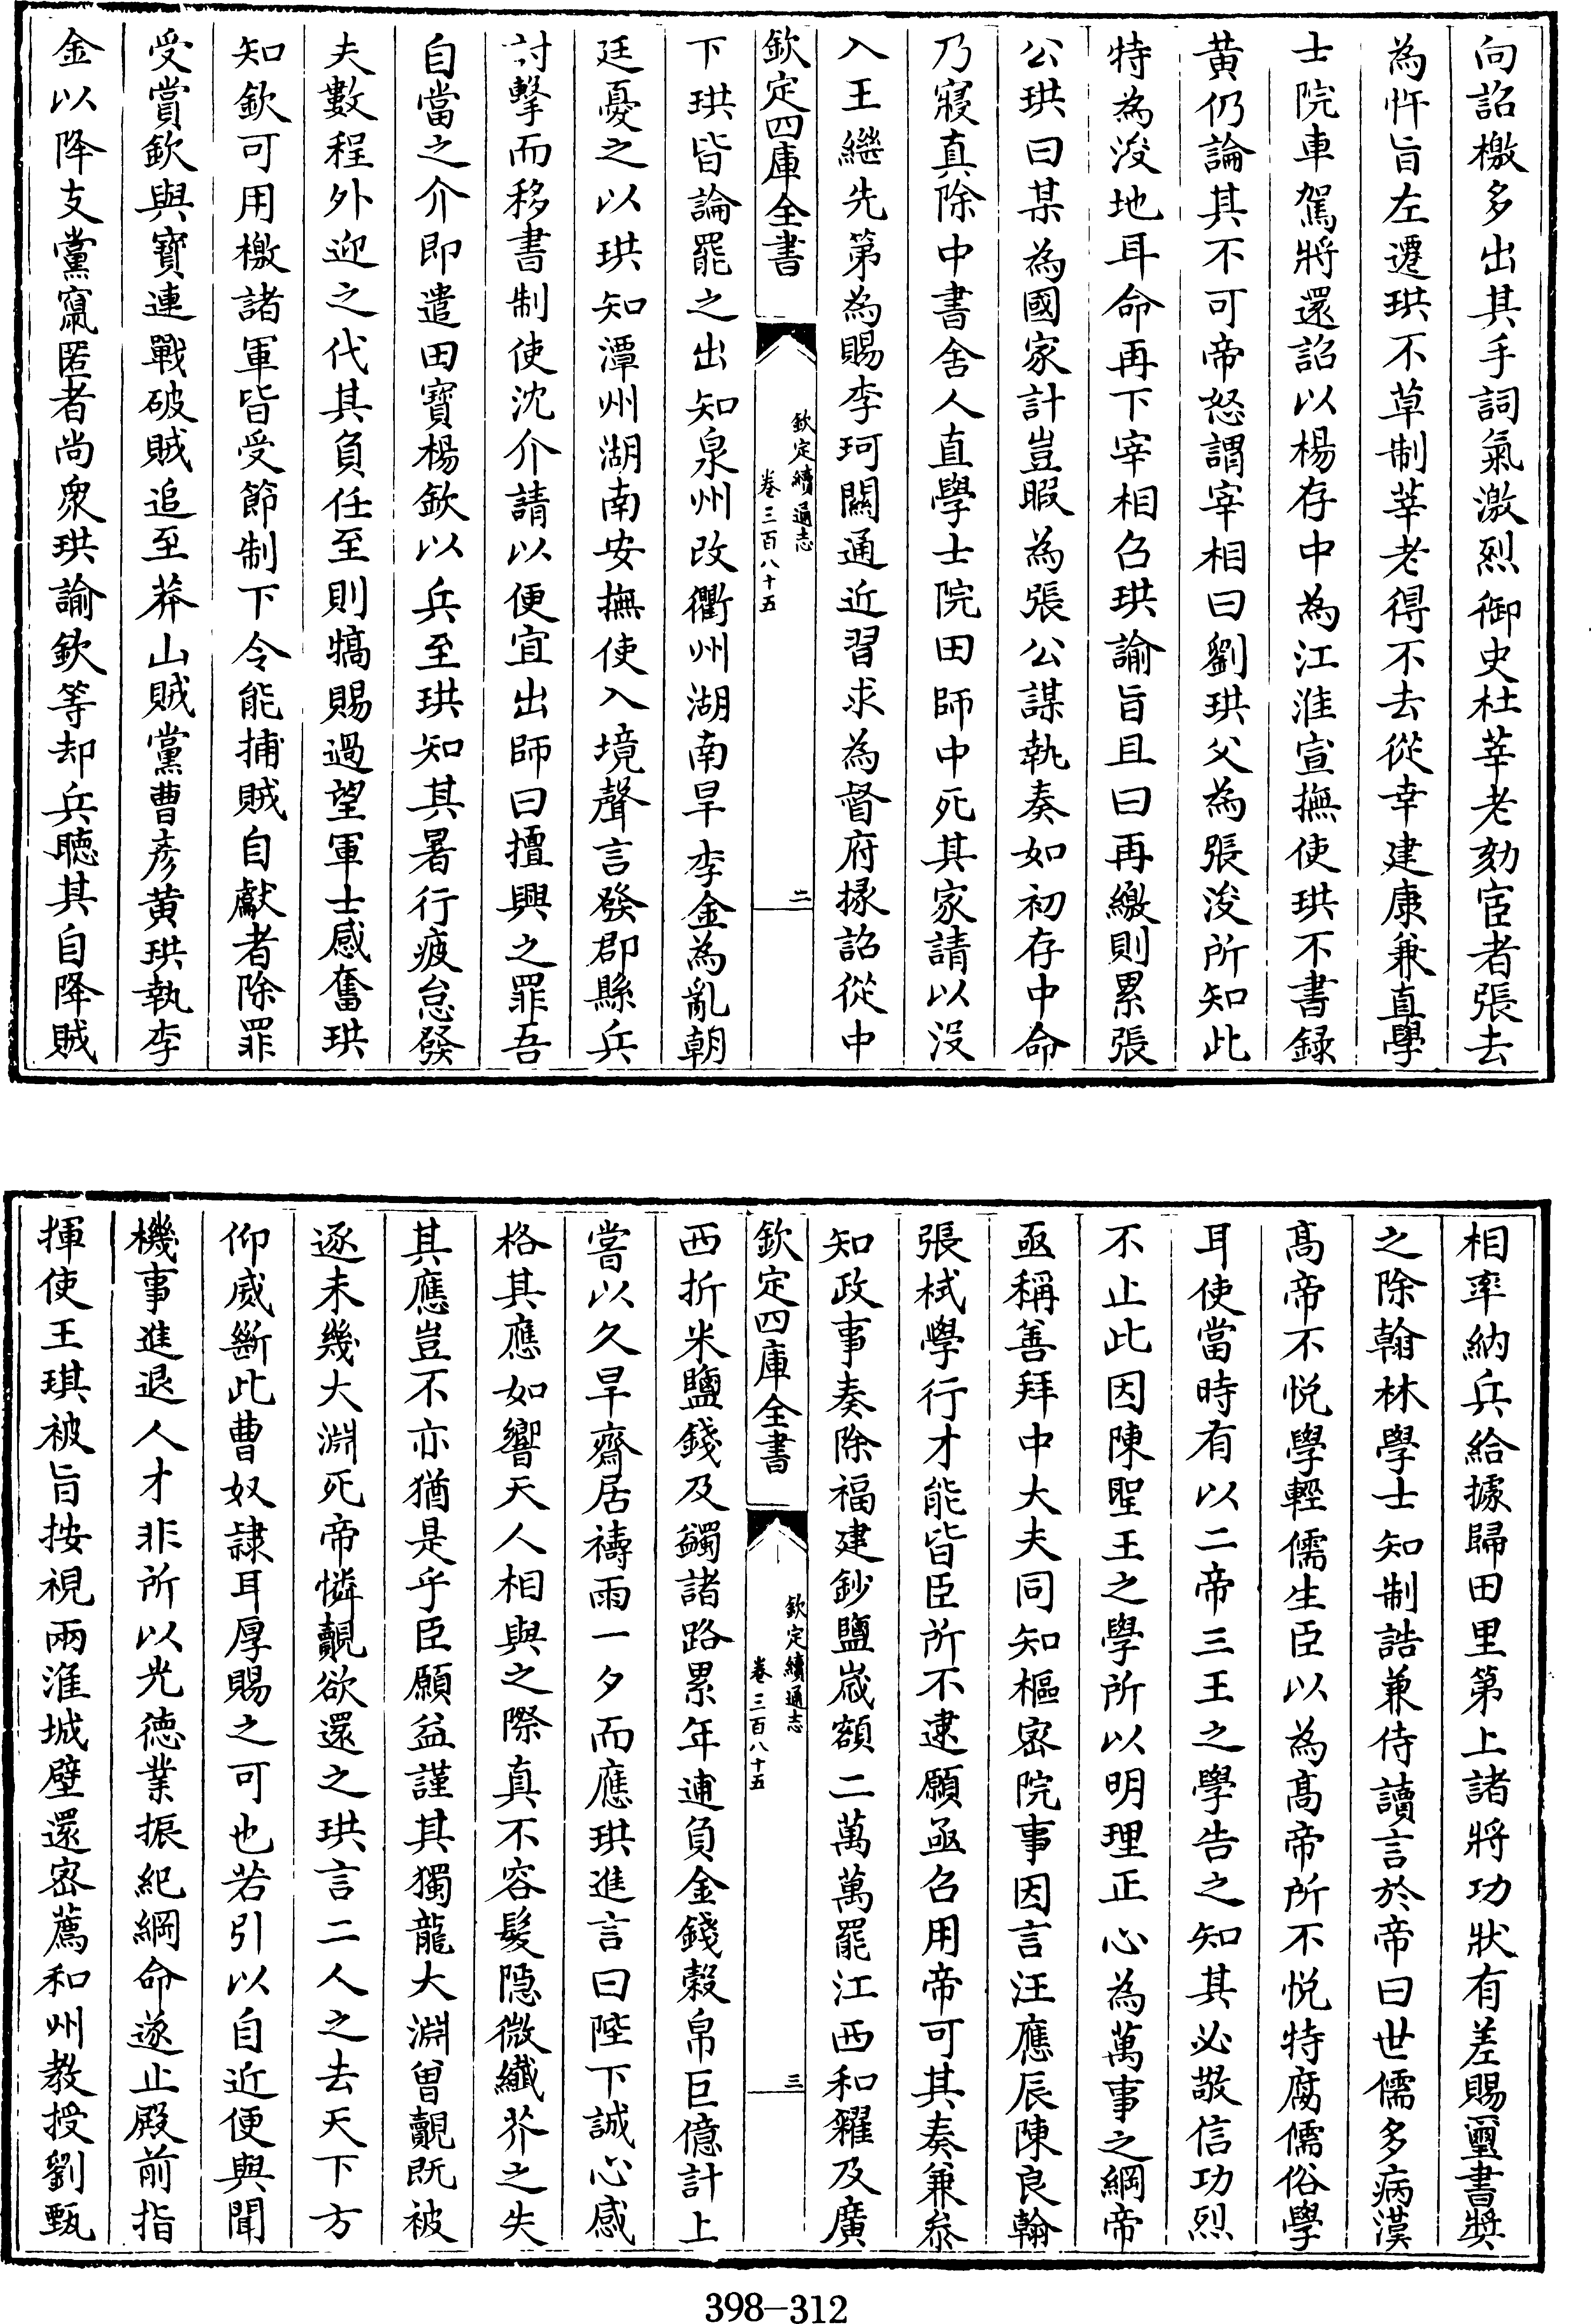 向詔檄多出其手詞氣激烈御史杜莘老劾宦者張去
為忤旨左遷珙不草制莘老得不去從幸建康兼直學
士院車駕將還詔以楊存中為江淮宣撫使珙不書録
黄仍論其不可帝怒謂宰相曰劉珙父為張浚所知此
特為浚地耳命再下宰相召珙諭旨且曰再繳則累張
公珙曰某為國家計豈暇為張公謀執奏如初存中命
乃寢真除中書舍人直學士院田師中死其家請以没
入王繼先第為賜李珂關通近習求為督府掾詔從中
欽定四庫全書
欽定續通志
卷三百八十五
二
下珙皆論罷之出知泉州改衢州湖南旱李金為亂朝
廷憂之以珙知潭州湖南安撫使入境聲言發郡縣兵
討擊而移書制使沈介請以便宜出師曰擅興之罪吾
自當之介即遣田寶楊欽以兵至珙知其暑行疲怠發
夫數程外迎之代其負任至則犒賜過望軍士感奮珙
知欽可用檄諸軍皆受節制下令能捕賊自獻者除罪
受賞欽與寳連戰破賊追至莽山賊黨曹彥黄珙執李
金以降支黨竄匿者尚衆珙諭欽等却兵聽其自降賊
相率納兵給據歸田里第上諸將功狀有差賜璽書奬
之除翰林學士知制誥兼侍讀言於帝曰世儒多病漢
髙帝不悦學輕儒生臣以為髙帝所不悦特腐儒俗學
耳使當時有以二帝三王之學告之知其必敬信功烈
不止此因陳聖王之學所以明理正心為萬事之綱帝
亟稱善拜中大夫同知樞密院事因言汪應辰陳良翰
張栻學行才能皆臣所不逮願亟召用帝可其奏兼叅
知政事奏除福建鈔鹽嵗額二萬萬罷江西和糴及廣
欽定四庫全書
欽定續通志
卷三百八十五
三
西折米鹽錢及蠲諸路累年逋負金錢榖帛巨億計上
嘗以久旱齋居禱雨一夕而應珙進言曰陛下誠心感
格其應如響天人相與之際真不容髮隠微纎芥之失
其應豈不亦猶是乎臣願益謹其獨龍大淵曾覿既被
逐未幾大淵死帝憐覿欲還之珙言二人之去天下方
仰威斷此曹奴隷耳厚賜之可也若引以自近便與聞
機事進退人才非所以光德業振紀綱命遂止殿前指
揮使王琪被旨按視兩淮城壁還密薦和州教授劉甄
398-312